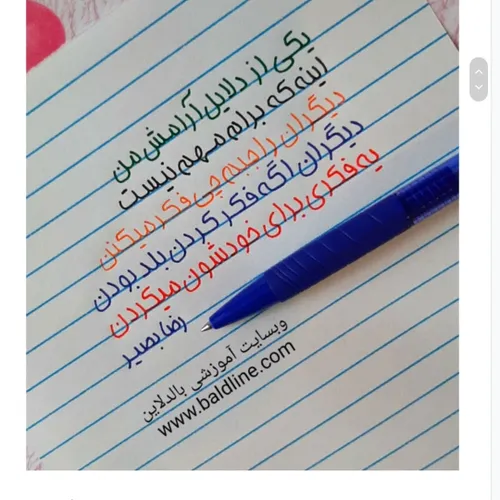 یکی از دلایل آرامش من
اینه که برام مهم نیست
دیگران راجبم چی فکر میکنن
دیگران اگه فکر کردن بلد بودن
یه فکری برای خودشون میکردن
رضا بصیر
وبسایت آموزشی بالدلاین
www.baldline.com